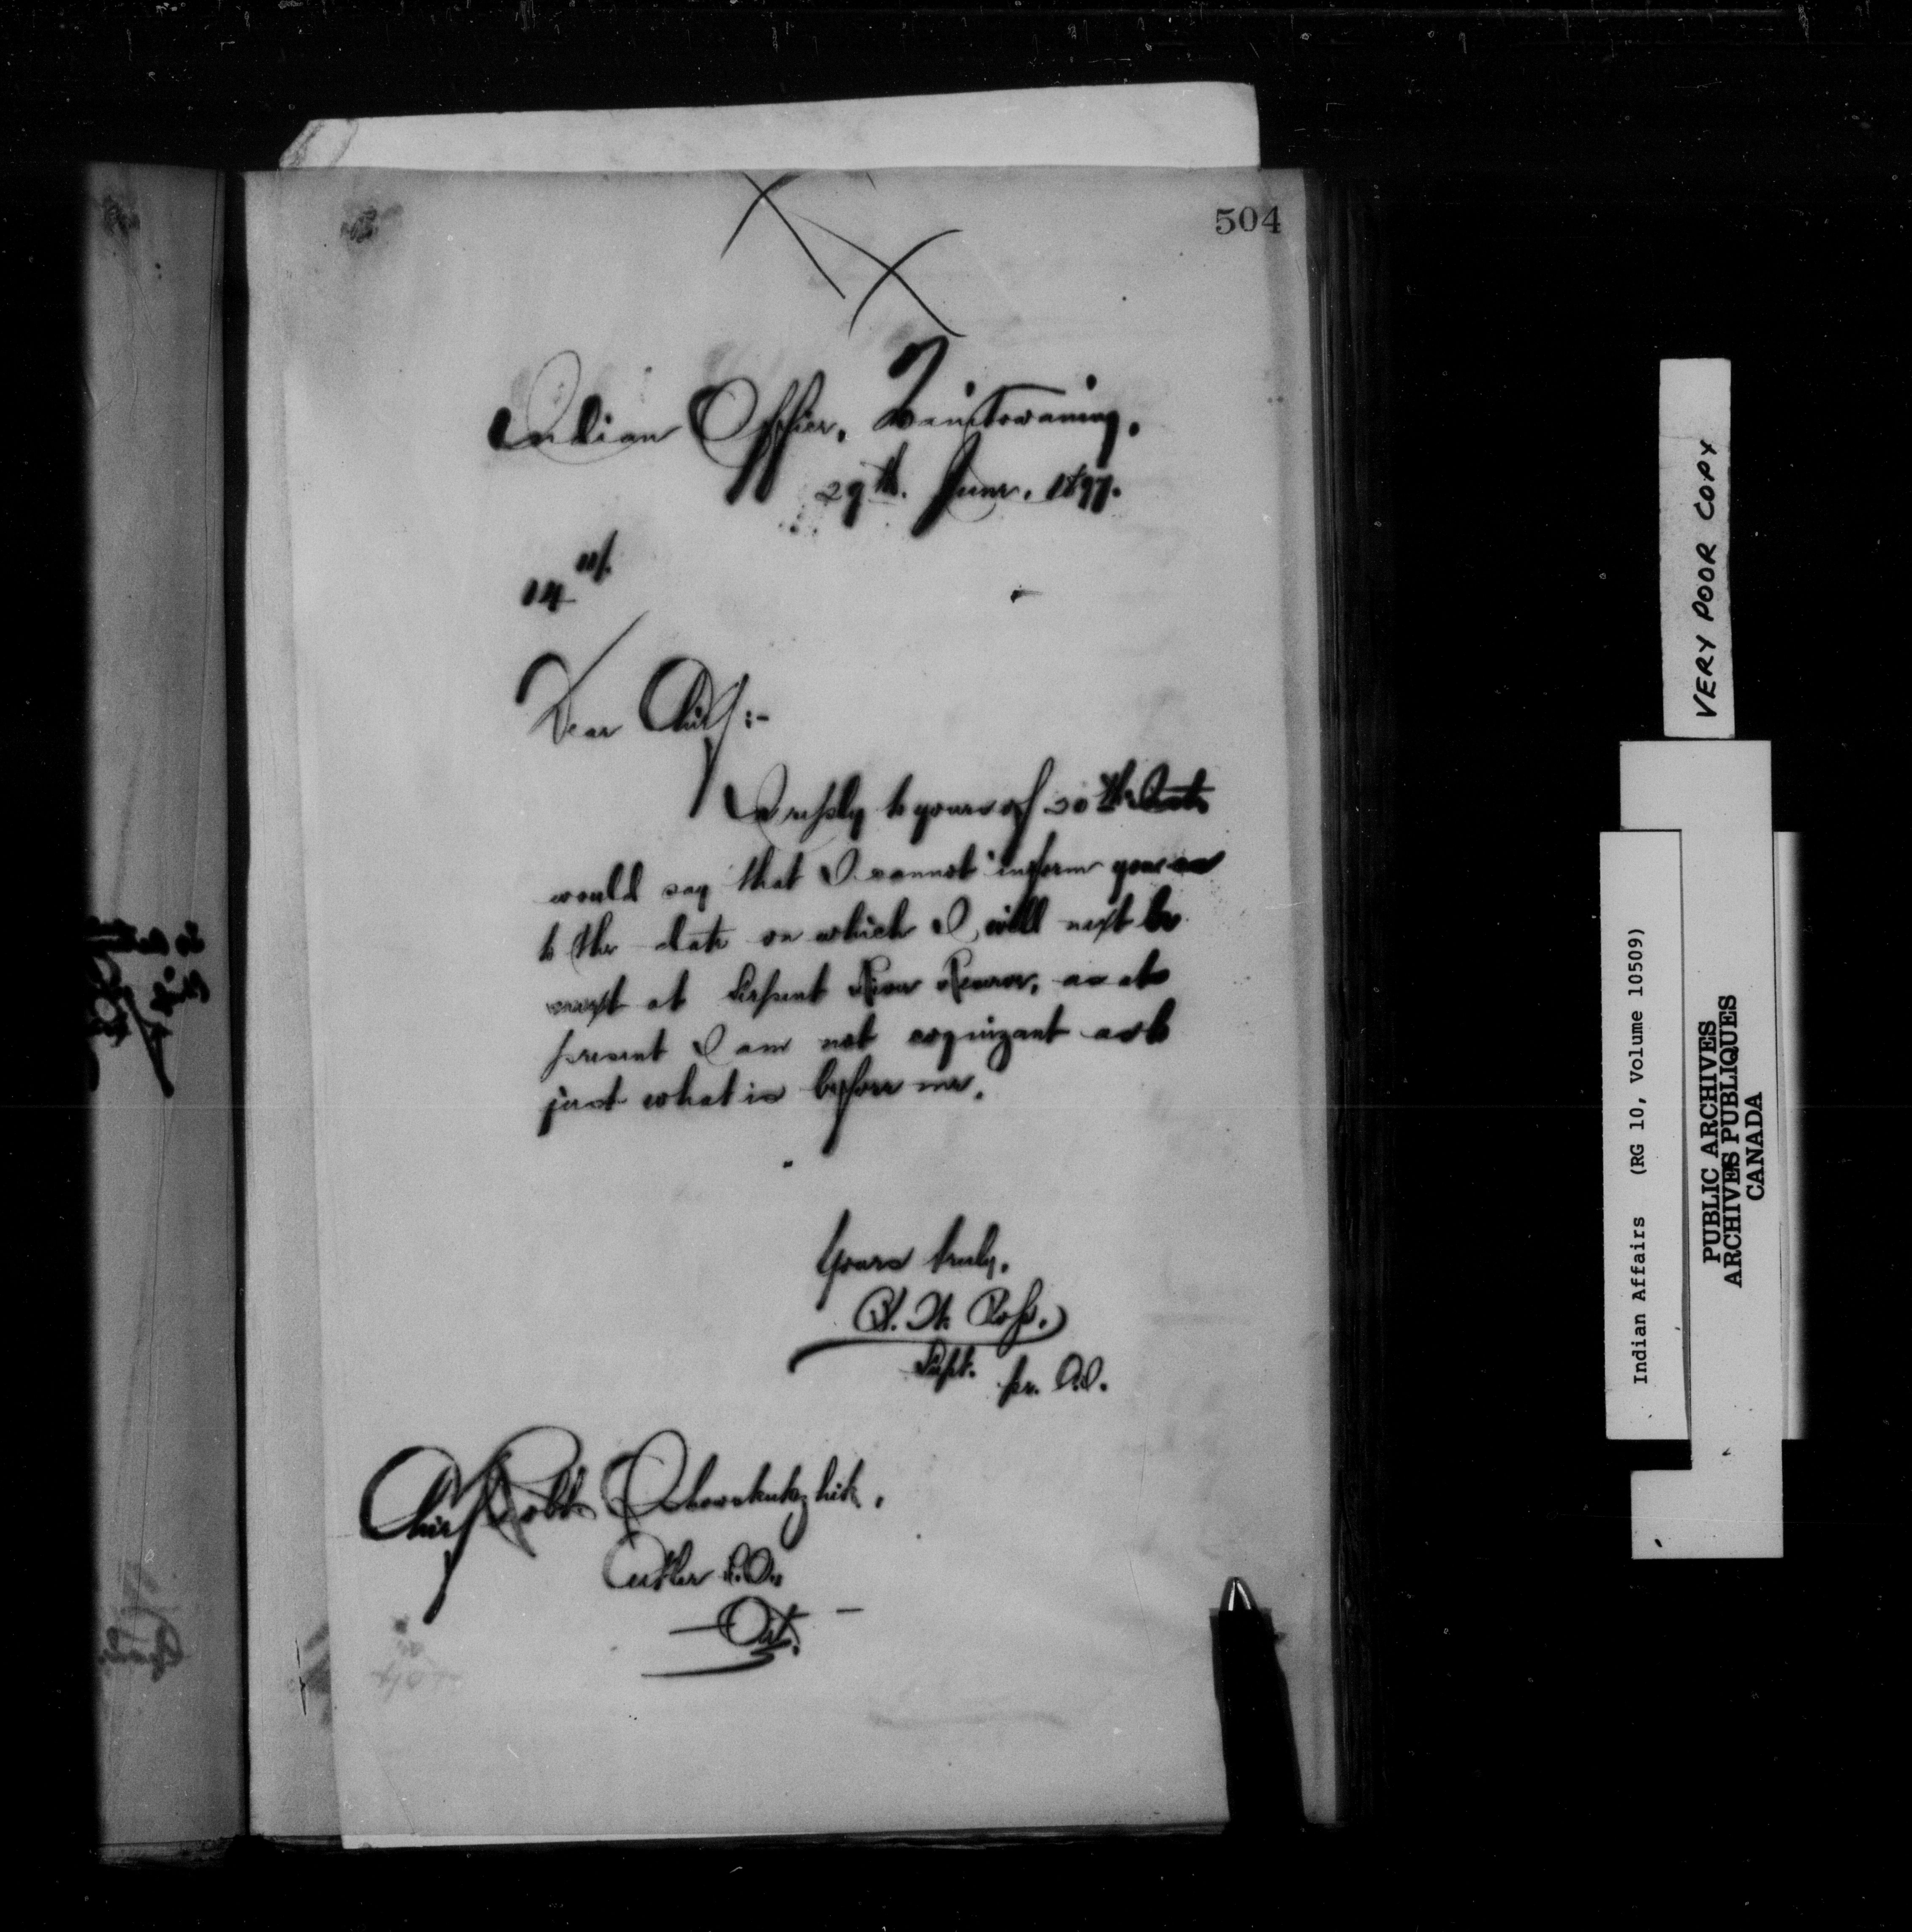 504
Indian Office, Manitowaning,
29th. June, 1897.
14
Dear Chief:-
In reply to yours of 20th Inst.
would say that I cannot inform you as
to the date on which I will next be
at Serpent River Reserve, as at
present I am not cognizant as to
just what is before me.
Yours truly,
B. W. Ross,
Supt.
pr.
Chief Robt.
Cutler P.O.,
Ont.
VERY POOR COPY
Indian Affairs (RG 10, Volume 10509)
PUBLIC ARCHIVES
ARCHIVES PUBLIQUES
CANADA